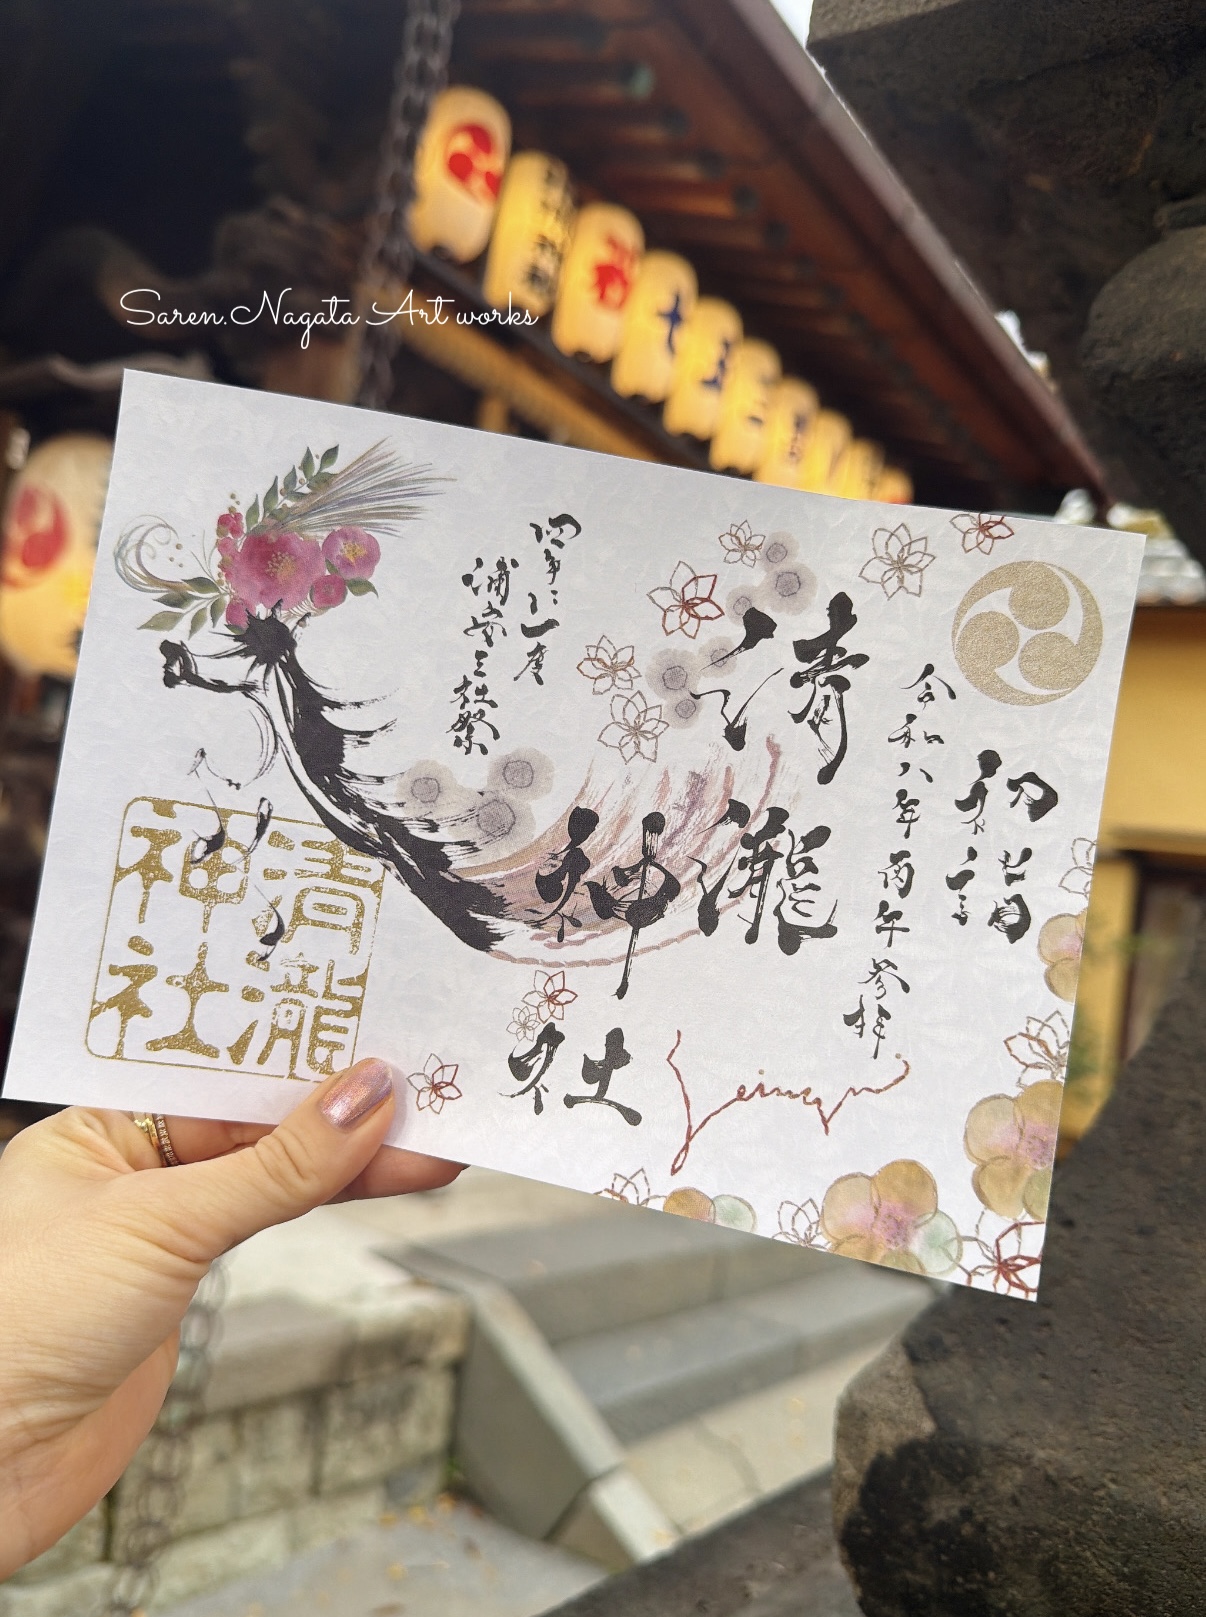 Saren.Nagata Art works
初詣
令和八年丙午参拝
清瀧神社
四年に一度
浦安三社祭
Seiryu
清瀧
神社
十
五